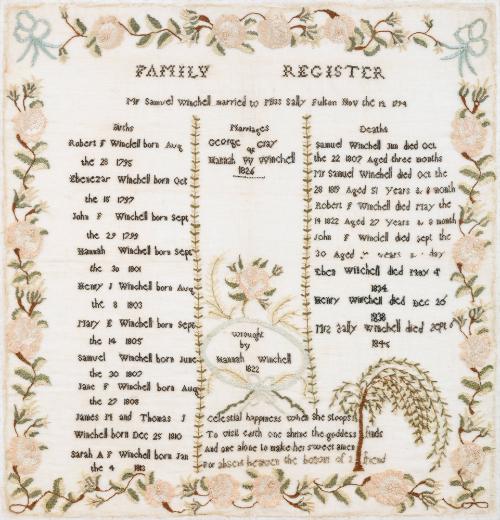 FAMILY REGISTER
Mr Samuel Winchell married to Miss Sally Fulton Nov the 12 1794
Births
Robert F Winchell born Aug
the 28 1795
Ebenezar Winchell born Oct
the 15 1797
John F Winchell born Sept
the 29 1799
Hannah Winchell born Sept
the 30 1801
Henry J Winchell born Aug
the 8 1803
Mary E Winchell born Sept
the 14 1805
Samuel Winchell born June
the 30 1807
Jane F Winchell born Aug
the 27 1808
James M and Thomas J
Winchell born Dec 25 1810
Sarah A F Winchell born Jan
the 4 1813
Marriages
George Gray
&
Hannah W Winchell
1826
Deaths
Samuel Winchell Jun died Oct
the 22 1807 Aged three months
Mr Samuel Winchell died Oct the
28 Aged 51 Years & month
Robert F Winchell died May the
14 1822 Aged 27 Years & month
John F Winchell died Sept the
30 Aged years day
Eben Winchell died May 4
1834
Henry Winchell died Dec 26
1838
Mrs Sally Winchell died Sept 6
Wrought
by
Hannah Winchell
1822
Celestial happiness when she stoops
To visit earth one shrine the goddess finds
And one alone to make her sweet amends
For absent heaven the bosom of a friend